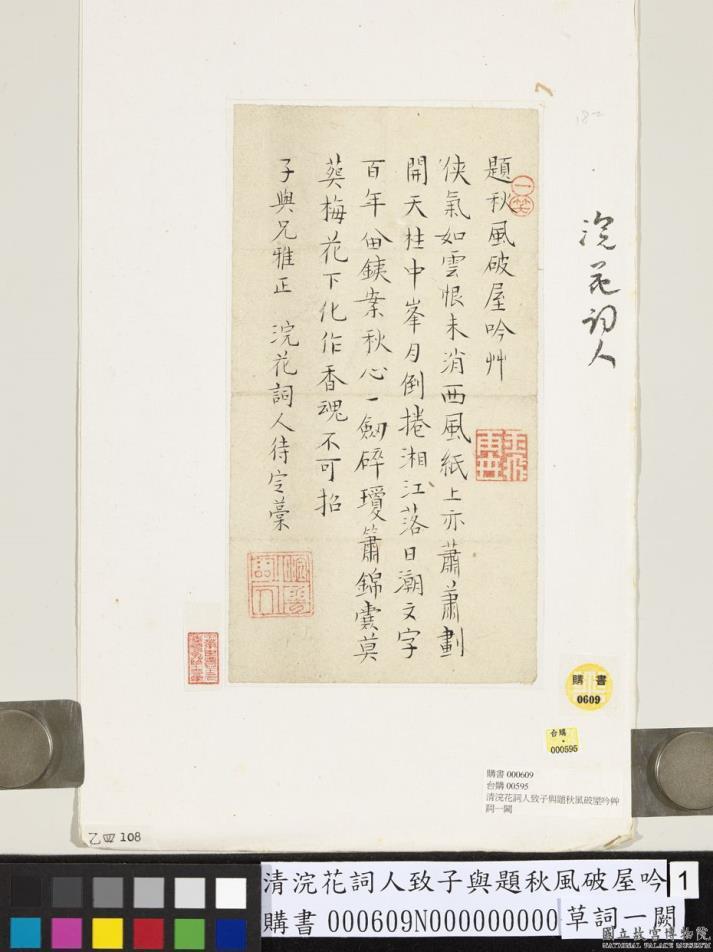 題秋風破屋吟艸
俠氣如雲恨未消西風紙上亦蕭蕭劃
開天柱中峯月倒捲湘江落日潮文字
百年留鋏案秋心一劒碎瓊簫錦囊莫
葵梅花下化作香魂不可招
子與兄雅正 浣花詞人待定藁
一笑
浣花詞人
購書
0609
台購
000595
購書 000609
台購 00595
清浣花詞人致子與題秋風破屋吟艸
詞一闋
乙四 108
清浣花詞人致子與題秋風破屋吟
購書 000609N000000000 草詞一闕
1
國立故宮博物院
NATIONAL PALACE MUSEUM